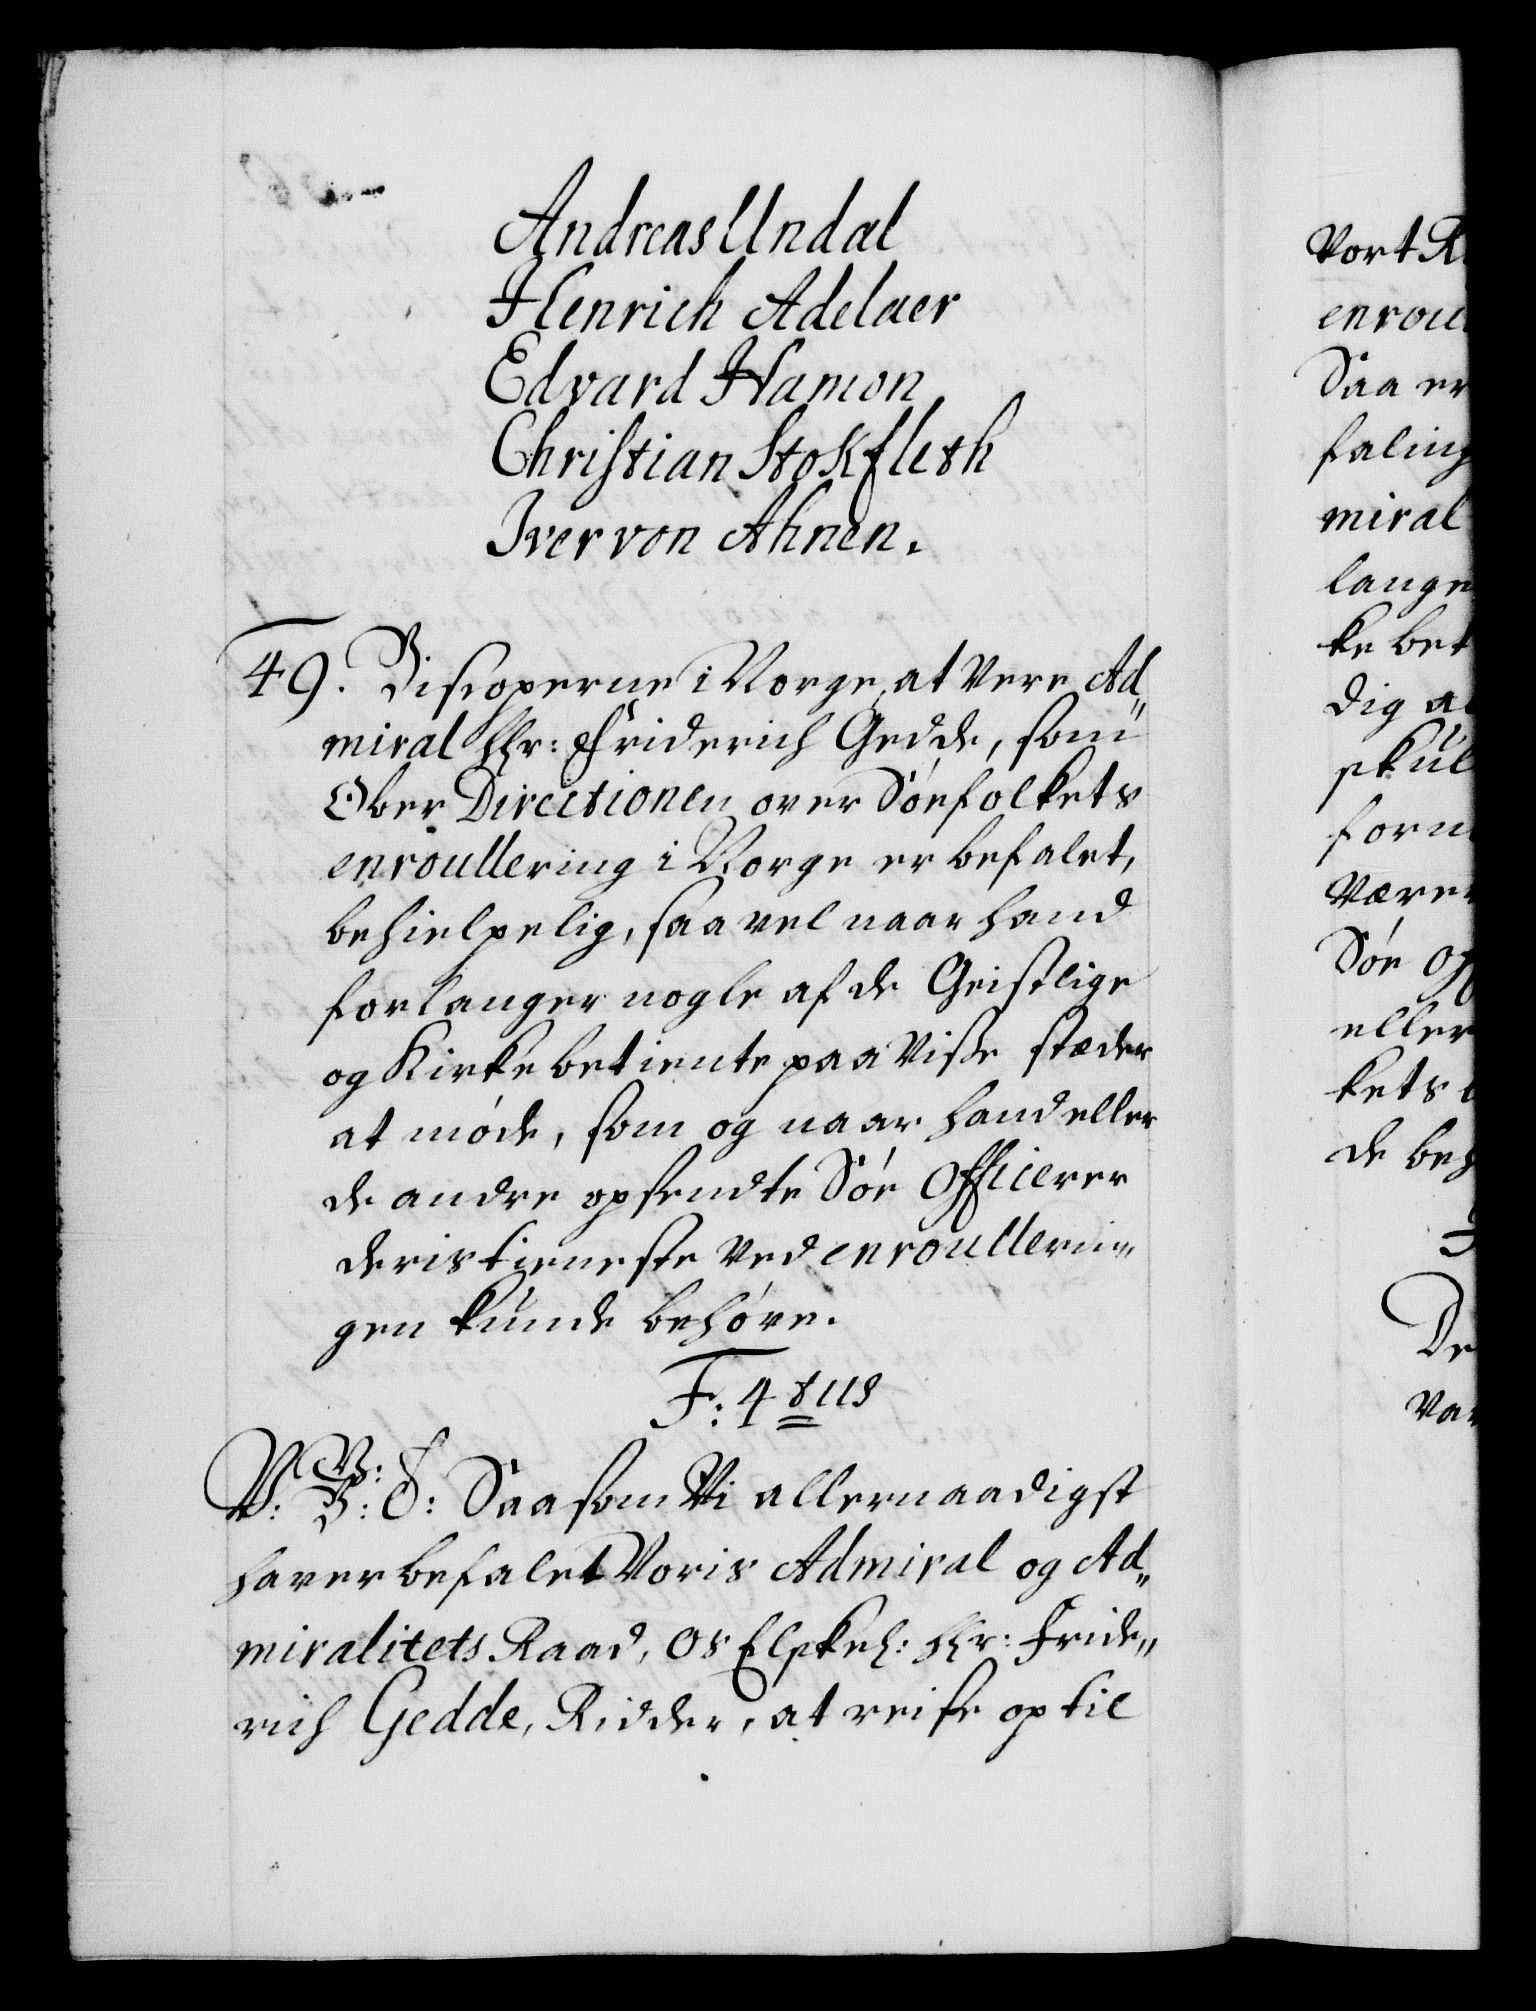 Andreas Undal
Henrich Adelaer
Edvard Hamon
Christian Stokfleth
Iver von Ahnen.
49. Biscoperne i Norge, at Vere Ad„
miral Hr: Friderich Gedde, som
Ober Directionen over Söefolkets
enroullering i Norge er befalet,
behielpelig, saavel naar hand
forlanger nogle af de Geistlige
og Kirke betiente paa Visse stæder
at møde, som og naar hand eller
de andre opsendte Söe Officerer
deris tieneste ved enroullerin„
gen kunde behøve.
F: 4tus
V: G: T: Saasom Vi allernaadigst
haver befalet Voris Admiral og Ad„
miralitets Raad, Os Elskel: Hr: Fride„
rich Gedde, Ridder, at reise op til
Vort R
enroul
Saa er
faling
miral
lange
ke bet
dig a
skul
forn
Være
Söe Of
eller
kets
de beh
De
Var